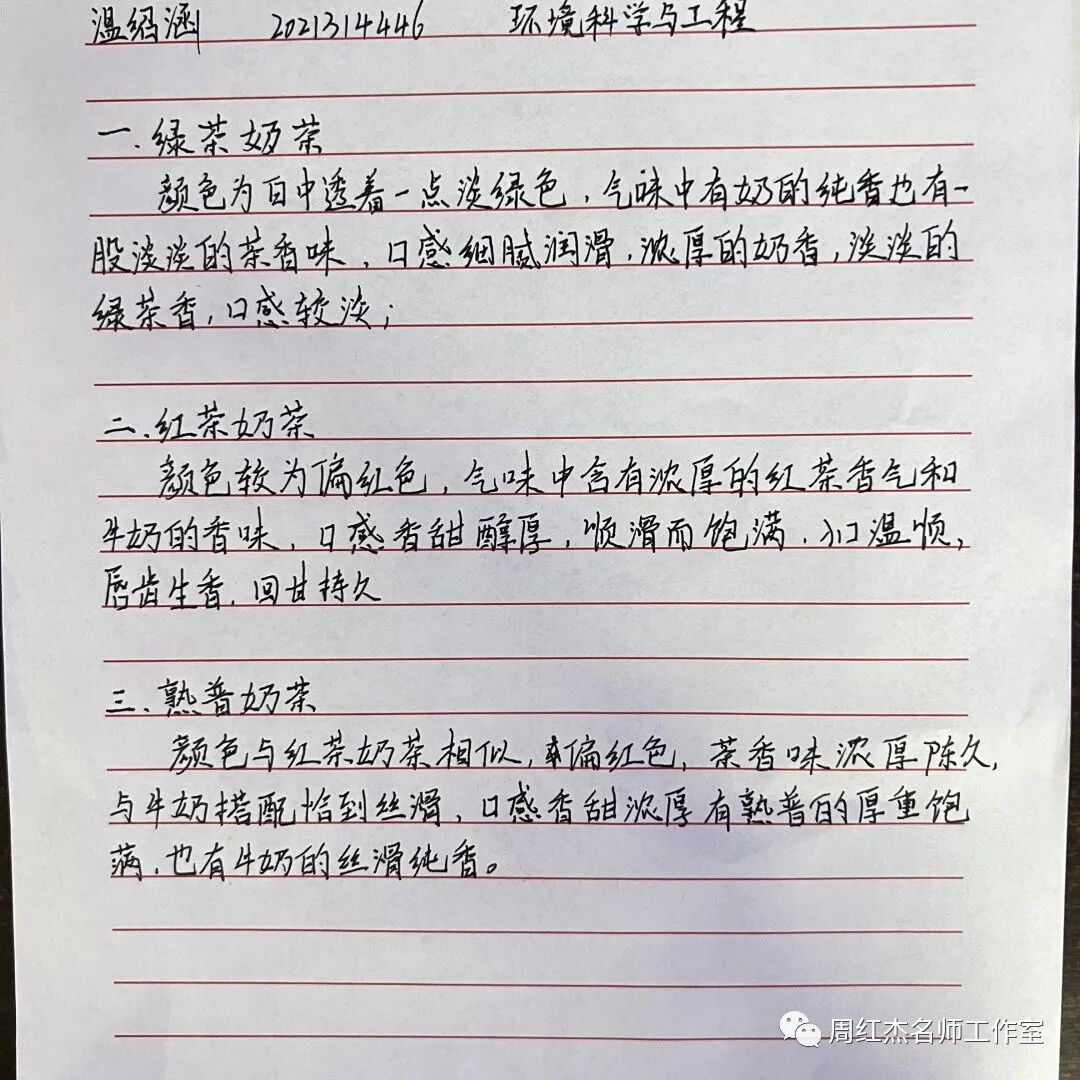 温绍涵 2021314446 环境科学与工程
一.绿茶奶茶
颜色为白中透着一点淡绿色,气味中有奶的纯香也有一
股淡淡的茶香味,口感细腻润滑,浓厚的奶香,淡淡的
绿茶香,口感较淡;
二、红茶奶茶
颜色较为偏红色,气味中含有浓厚的红茶香气和
牛奶的香味,口感香甜醇厚,顺滑而饱满,入口温顺,
唇齿生香,回甘持久
三、熟普奶茶
颜色与红茶奶茶相似,偏红色,茶香味浓厚陈久,
与牛奶搭配恰到丝滑,口感香甜浓厚有熟普的厚重饱
满,也有牛奶的丝滑纯香。
周红杰名师工作室